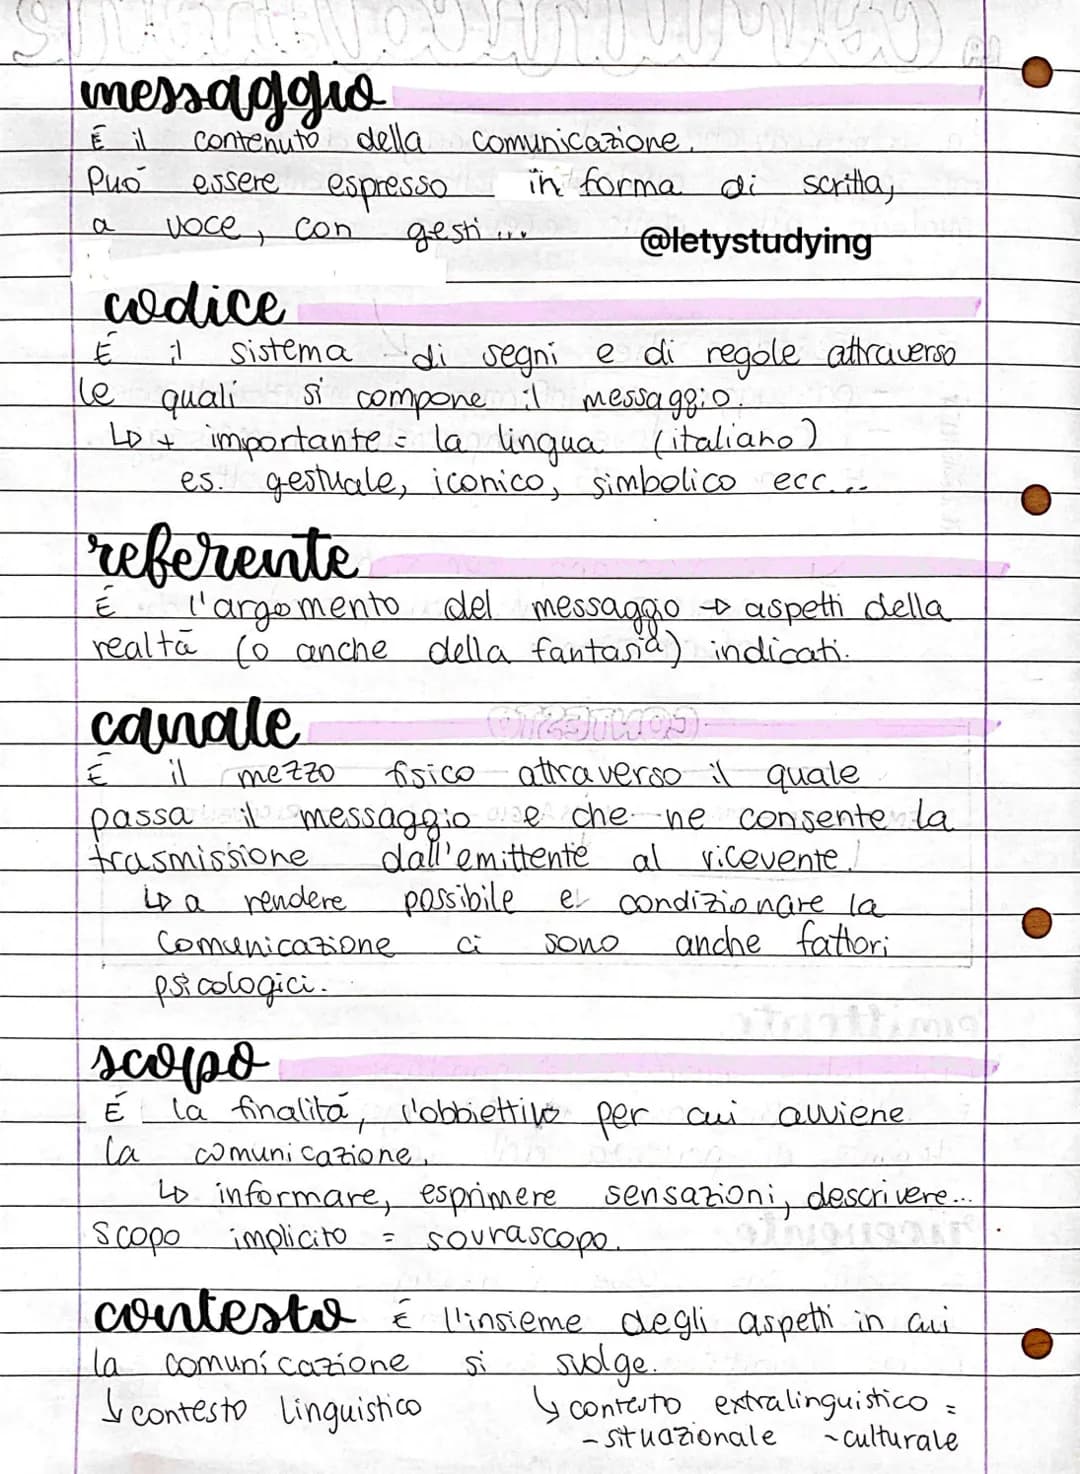 messaggio
É il contenuto della comunicazione.
Puó essere espresso in forma di scritta,
a voce, con gesti...
@letystudying
codice
É il sistema di segni e di regole attraverso
le quali si compone il messaggio.
↳ + importante = la lingua (italiano)
es. gestuale, iconico, simbolico ecc...
referente
É l'argomento del messaggio → aspetti della
realtá (o anche della fantasia) indicati.
canale
É il mezzo fisico attraverso il quale
passa il messaggio e che ne consente la
trasmissione dall'emittente al ricevente.
↳ a rendere possibile e condizionare la
comunicazione ci sono anche fattori
psicologici.
scopo
É la finalitá, l'obbiettivo per cui avviene
la comunicazione.
↳ informare, esprimere sensazioni, descrivere...
scopo implicito = sovrascopo.
contesto É l'insieme degli aspetti in cui
la comunicazione si svolge.
↳ contesto linguistico ↳ contesto extralinguistico =
- situazionale - culturale